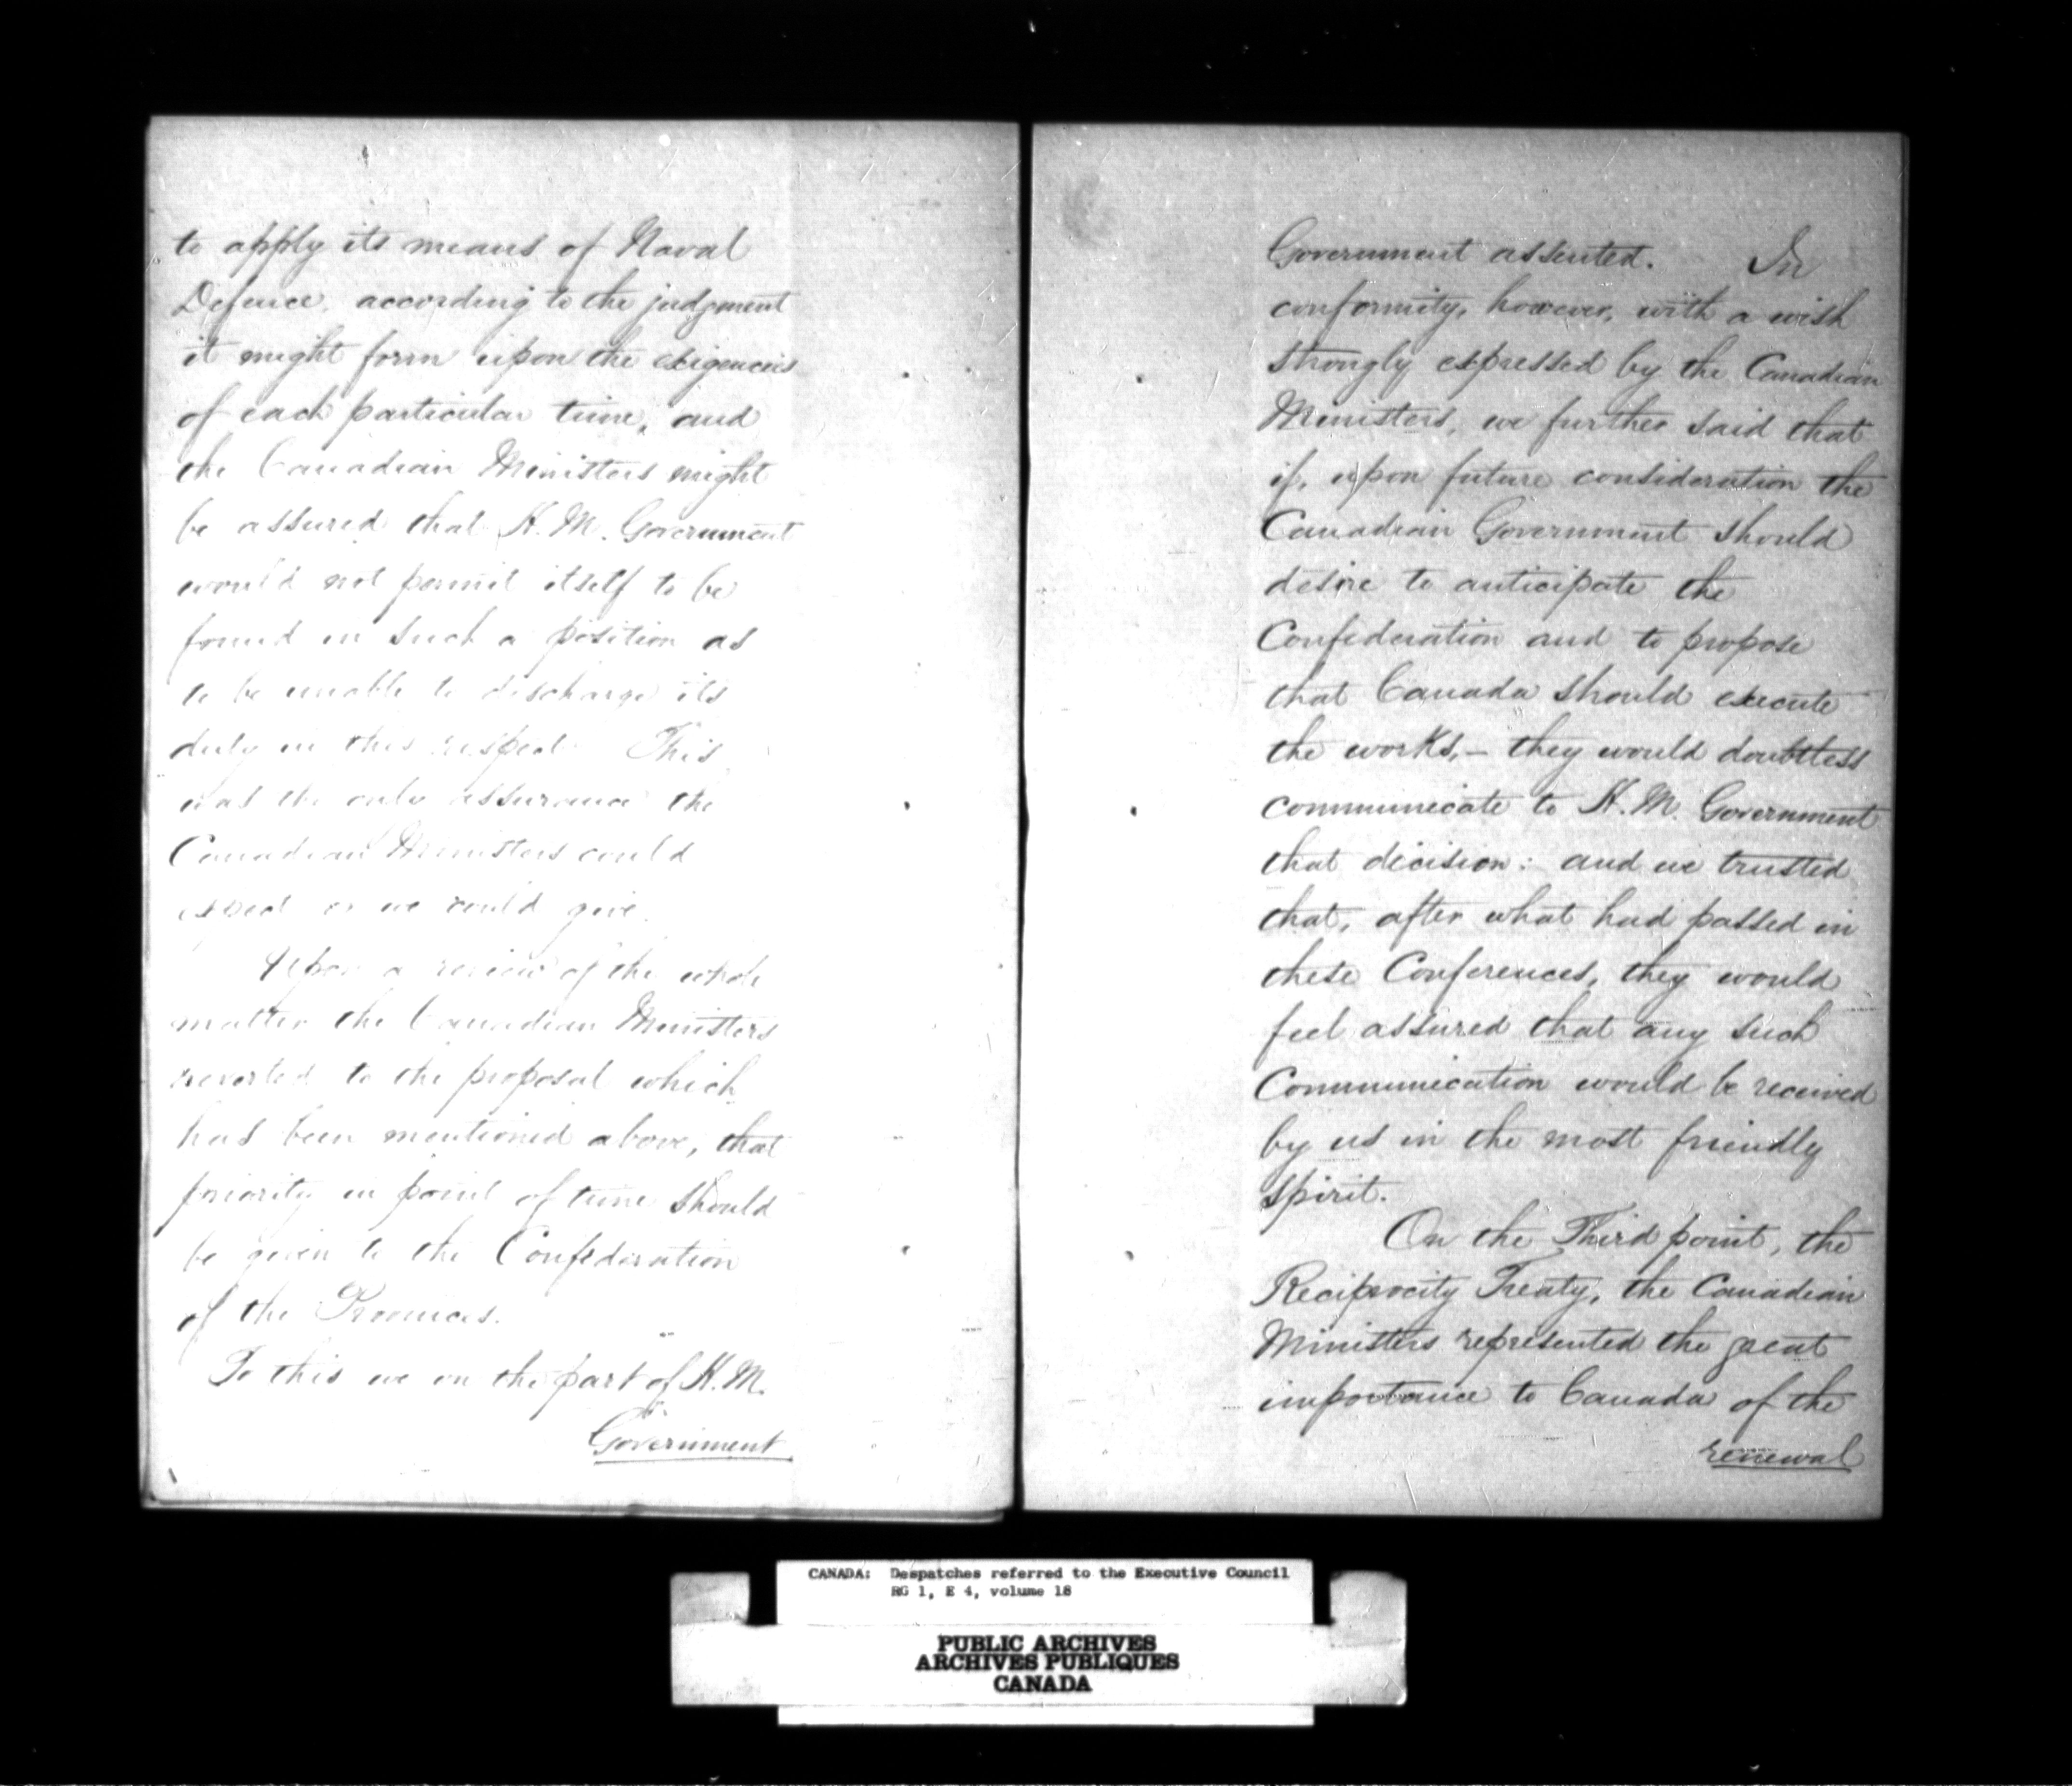 to apply its means of Naval
Defence, according to the judgment
it might form upon the exigencies
of each particular time, and
the Canadian Ministers might
be assured that H.M. Government
would not permit itself to be
found in such a position as
to be unable to discharge its
duty in this respect. This
was the only assurance the
Canadian Ministers could
expect or we could give.
Upon a review of the whole
matter the Canadian Ministers
reverted to the proposal which
has been mentioned above, that
priority in point of time should
be given to the Confederation
of the Provinces.
To this we on the part of H.M.
Government
Government assented. In
conformity, however, with a wish
strongly expressed by the Canadian
Ministers, we further said that
if, upon future consideration the
Canadian Government should
desire to anticipate the
Confederation and to propose
that Canada should execute
the works, — they would doubtless
communicate to H.M. Government
that decision: and we trusted
that, after what had passed in
these Conferences, they would
feel assured that any such
Communication would be received
by us in the most friendly
spirit.
On the Third point, the
Reciprocity Treaty, the Canadian
Ministers represented the great
importance to Canada of the
renewal
CANADA: Despatches referred to the Executive Council
RG 1, E 4, volume 18
PUBLIC ARCHIVES
ARCHIVES PUBLIQUES
CANADA